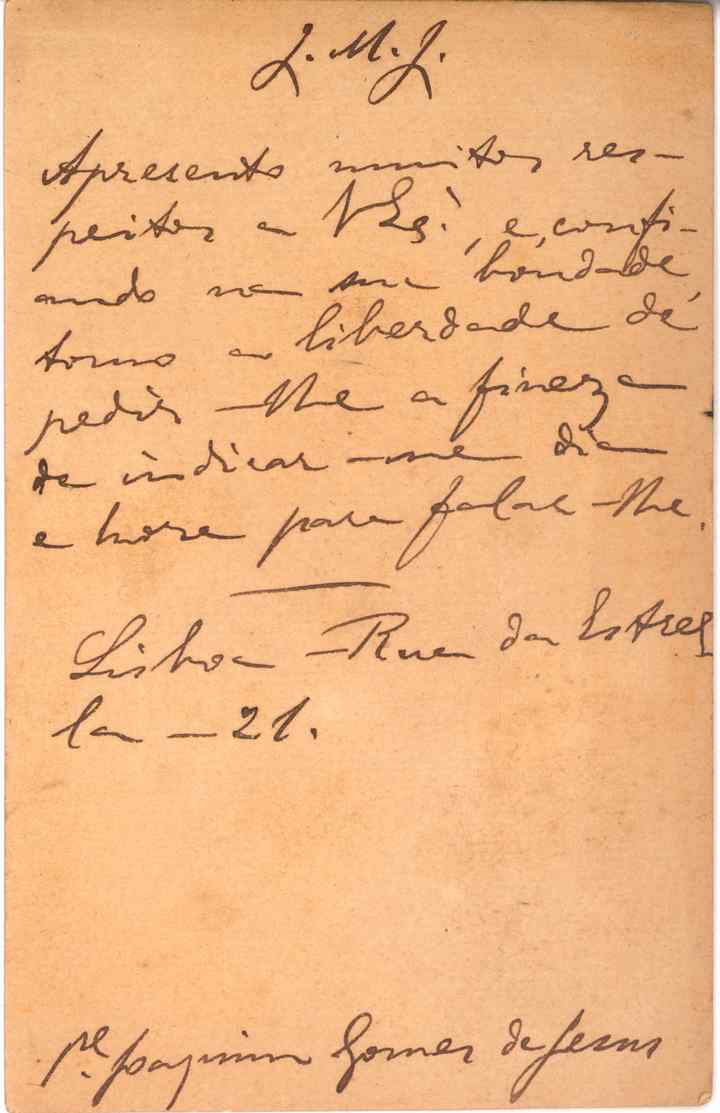 J. M. J.
Apresento muitos res-
peitos a V Exª., e, confi-
ando na sua bondade,
tomo a liberdade de
pedir-lhe a fineza
de indicar-me dia
e hora para falar-lhe.
Lisboa - Rua da Estrel-
la - 21.
Pe. Joaquim Gomes de Jesus